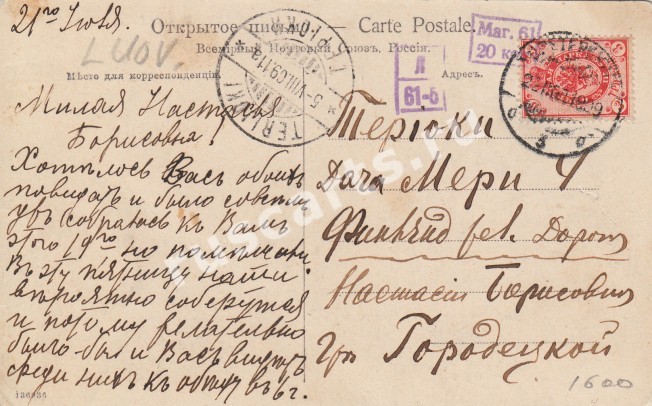 21го Июля
Открытое письмо. — Carte Postale.
Всемірный Почтовый Союзъ, Россія.
Мѣсто для корреспонденціи.
Адресъ.
LUOV.
Маг. 61
20 к
Л
61-б
TERIJOKI
5.VIII.09
Милая Настасья
Борисовна!
Хотѣлось Васъ обоихъ
повидать и было совсѣмъ
ужъ собралась къ Вамъ
этого 19го но помѣшали
Въ эту пятницу наши
вѣроятно соберутся
и потому желательно
было-бы и Васъ видѣть
среди нихъ къ обѣду въ 6 г.
Терiоки
Дача Мери
Финлянд. жел. Дорога
Настасiи Борисовнѣ
Гр Городецкой
1600
136936
ruscarts.ru